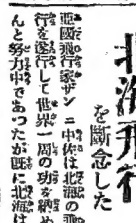 北海飛行
を斷念した
亞國飛行家ザンニ中佐は北海の飛
行を遂行して世界一周の功を納め
んと努力中であつたが既に北海は